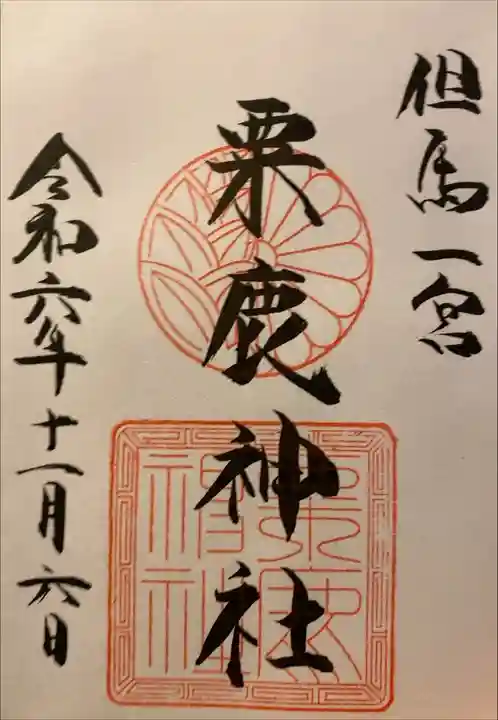 但馬一宮
粟鹿神社
粟鹿
神社
令和六年十一月六日